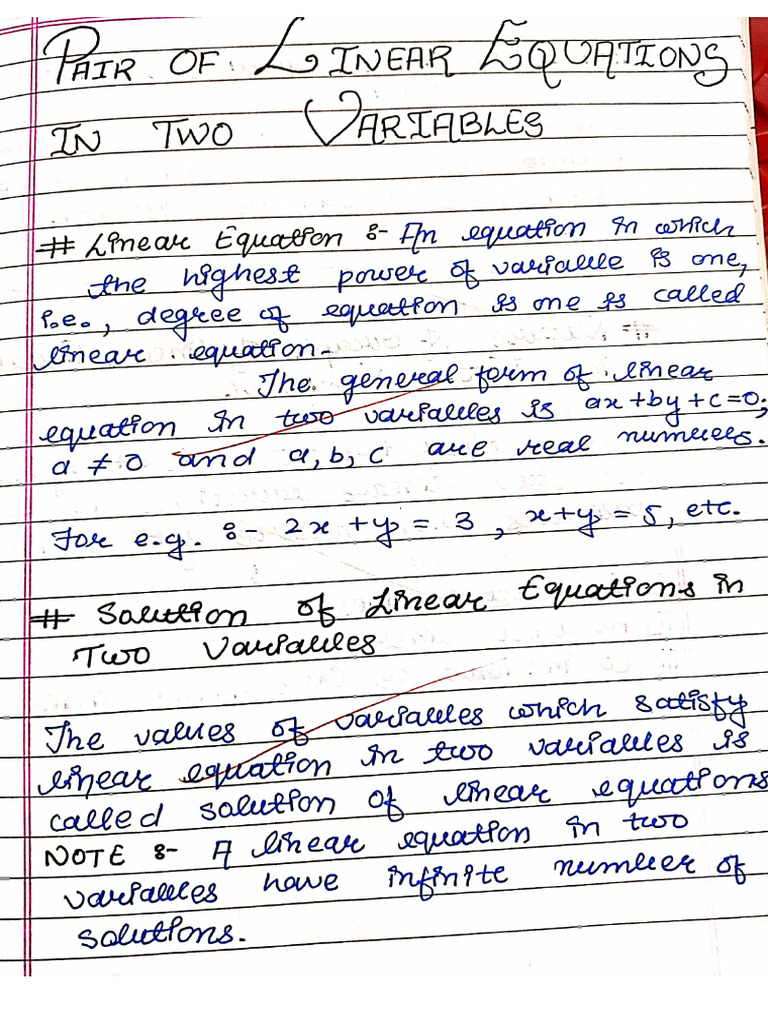 PAIR OF LINEAR EQUATIONS
IN TWO VARIABLES
# Linear Equation :- An equation in which
the highest power of variable is one,
i.e., degree of equation is one is called
linear equation.
The general form of linear
equation in two variables is ax+by+c=0;
a ≠ 0 and a, b, c are real numbers.
For e.g. :- 2x + y = 3 , x+y = 5, etc.
# Solution of Linear Equations in
Two Variables
The values of variables which satisfy
linear equation in two variables is
called solution of linear equations
NOTE :- A linear equation in two
variables have infinite number of
solutions.